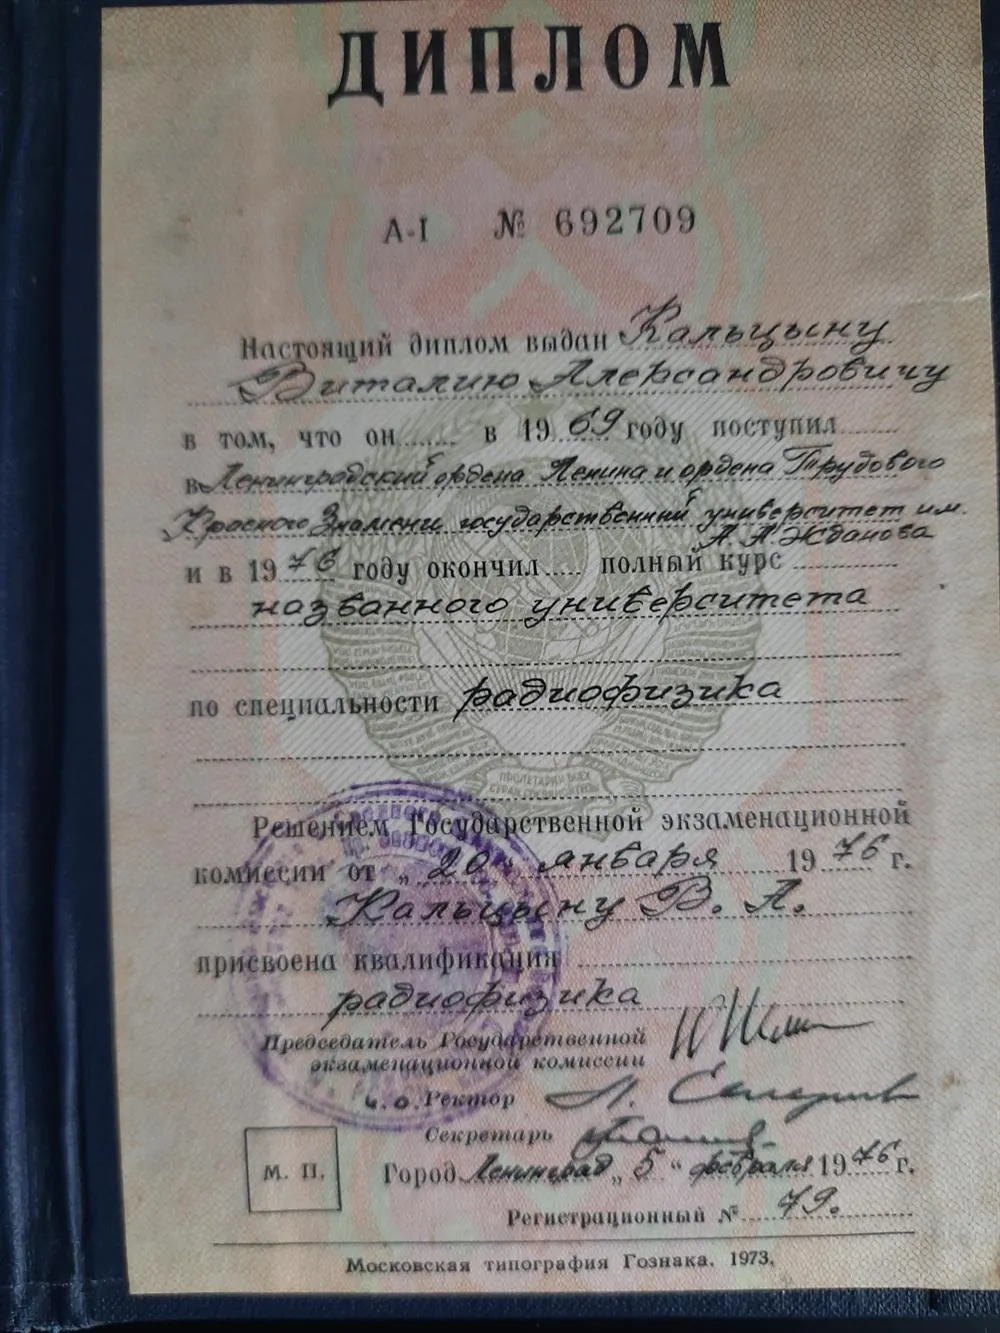 ДИПЛОМ
А-I № 692709
Настоящий диплом выдан Кальцыну
Виталию Александровичу
в том, что он в 1969 году поступил
в Ленинградский ордена Ленина и ордена Трудового
Красного Знамени государственный университет им.
А. А. Жданова
и в 1976 году окончил полный курс
названного университета
по специальности радиофизика
ПРОЛЕТАРИИ ВСЕХ
СТРАН, СОЕДИНЯЙТЕСЬ
Решением Государственной экзаменационной
комиссии от „20“ января 1976 г.
Кальцыну В. А.
присвоена квалификация
радиофизика
Председатель Государственной
экзаменационной комиссии
и. о. Ректор
Секретарь
М. П.
Город Ленинград „5“ февраля 1976 г.
Регистрационный № 79.
Московская типография Гознака. 1973.